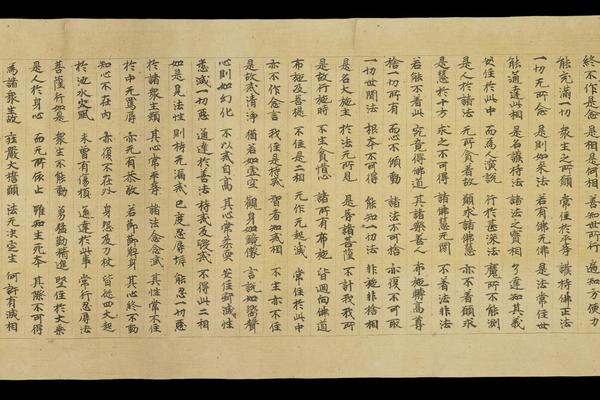 終不作是念 是相是何相 善知世所行 遍知方便力
能充滿一切 衆生之所願 常住於平等 護持佛正法
一切无所念 是則如來法 若有佛无佛 是法常住世
能通達此相 是名護持法 諸法之實相 了達知其義
安住於此中 而為人演說 行於甚深法 魔所不能測
是人於諸法 无所貪著故 願求諸佛慧 亦不著願求
是慧於十方 求之不可得 諸佛慧无閡 不著法非法
若能不著此 究竟得佛道 其諸樂善人 布施轉高尊
捨一切所有 而心不傾動 諸法不可捨 亦復不可取
一切世間法 根本不可得 能知一切法 非施非捨相
是名大施主 於法无所見 是等諸菩薩 不計我我所
是故行施時 不生貪惜心 諸所有布施 皆迴向佛道
布施及菩提 不住是二相 无作无起戒 常住於此中
亦不作念言 我住是持戒 智者知戒相 不生亦不住
是故戒清淨 猶若如虛空 觀身如鏡像 言說如響聲
心則如幻化 不以戒自高 其心常柔軟 安住寂滅性
悉滅一切惡 通達於善法 持戒及毀戒 不得此二相
如是見法性 則持无漏戒 已度忍辱岸 能忍一切惡
於諸衆生類 其心常平等 諸法念念滅 其性常不住
於中无罵辱 亦无有恭敬 若節節解身 其心終不動
知心不在內 亦復不在外 身怨及刀杖 皆從四大起
於地水火風 未曾有傷損 通達於此事 常行忍辱法
菩薩行如是 衆生不能動 勇猛勤精進 堅住於大乘
是人於身心 而无所依止 雖知生死本 其際不可得
為諸衆生故 莊嚴大誓願 法无決定生 何許有滅相